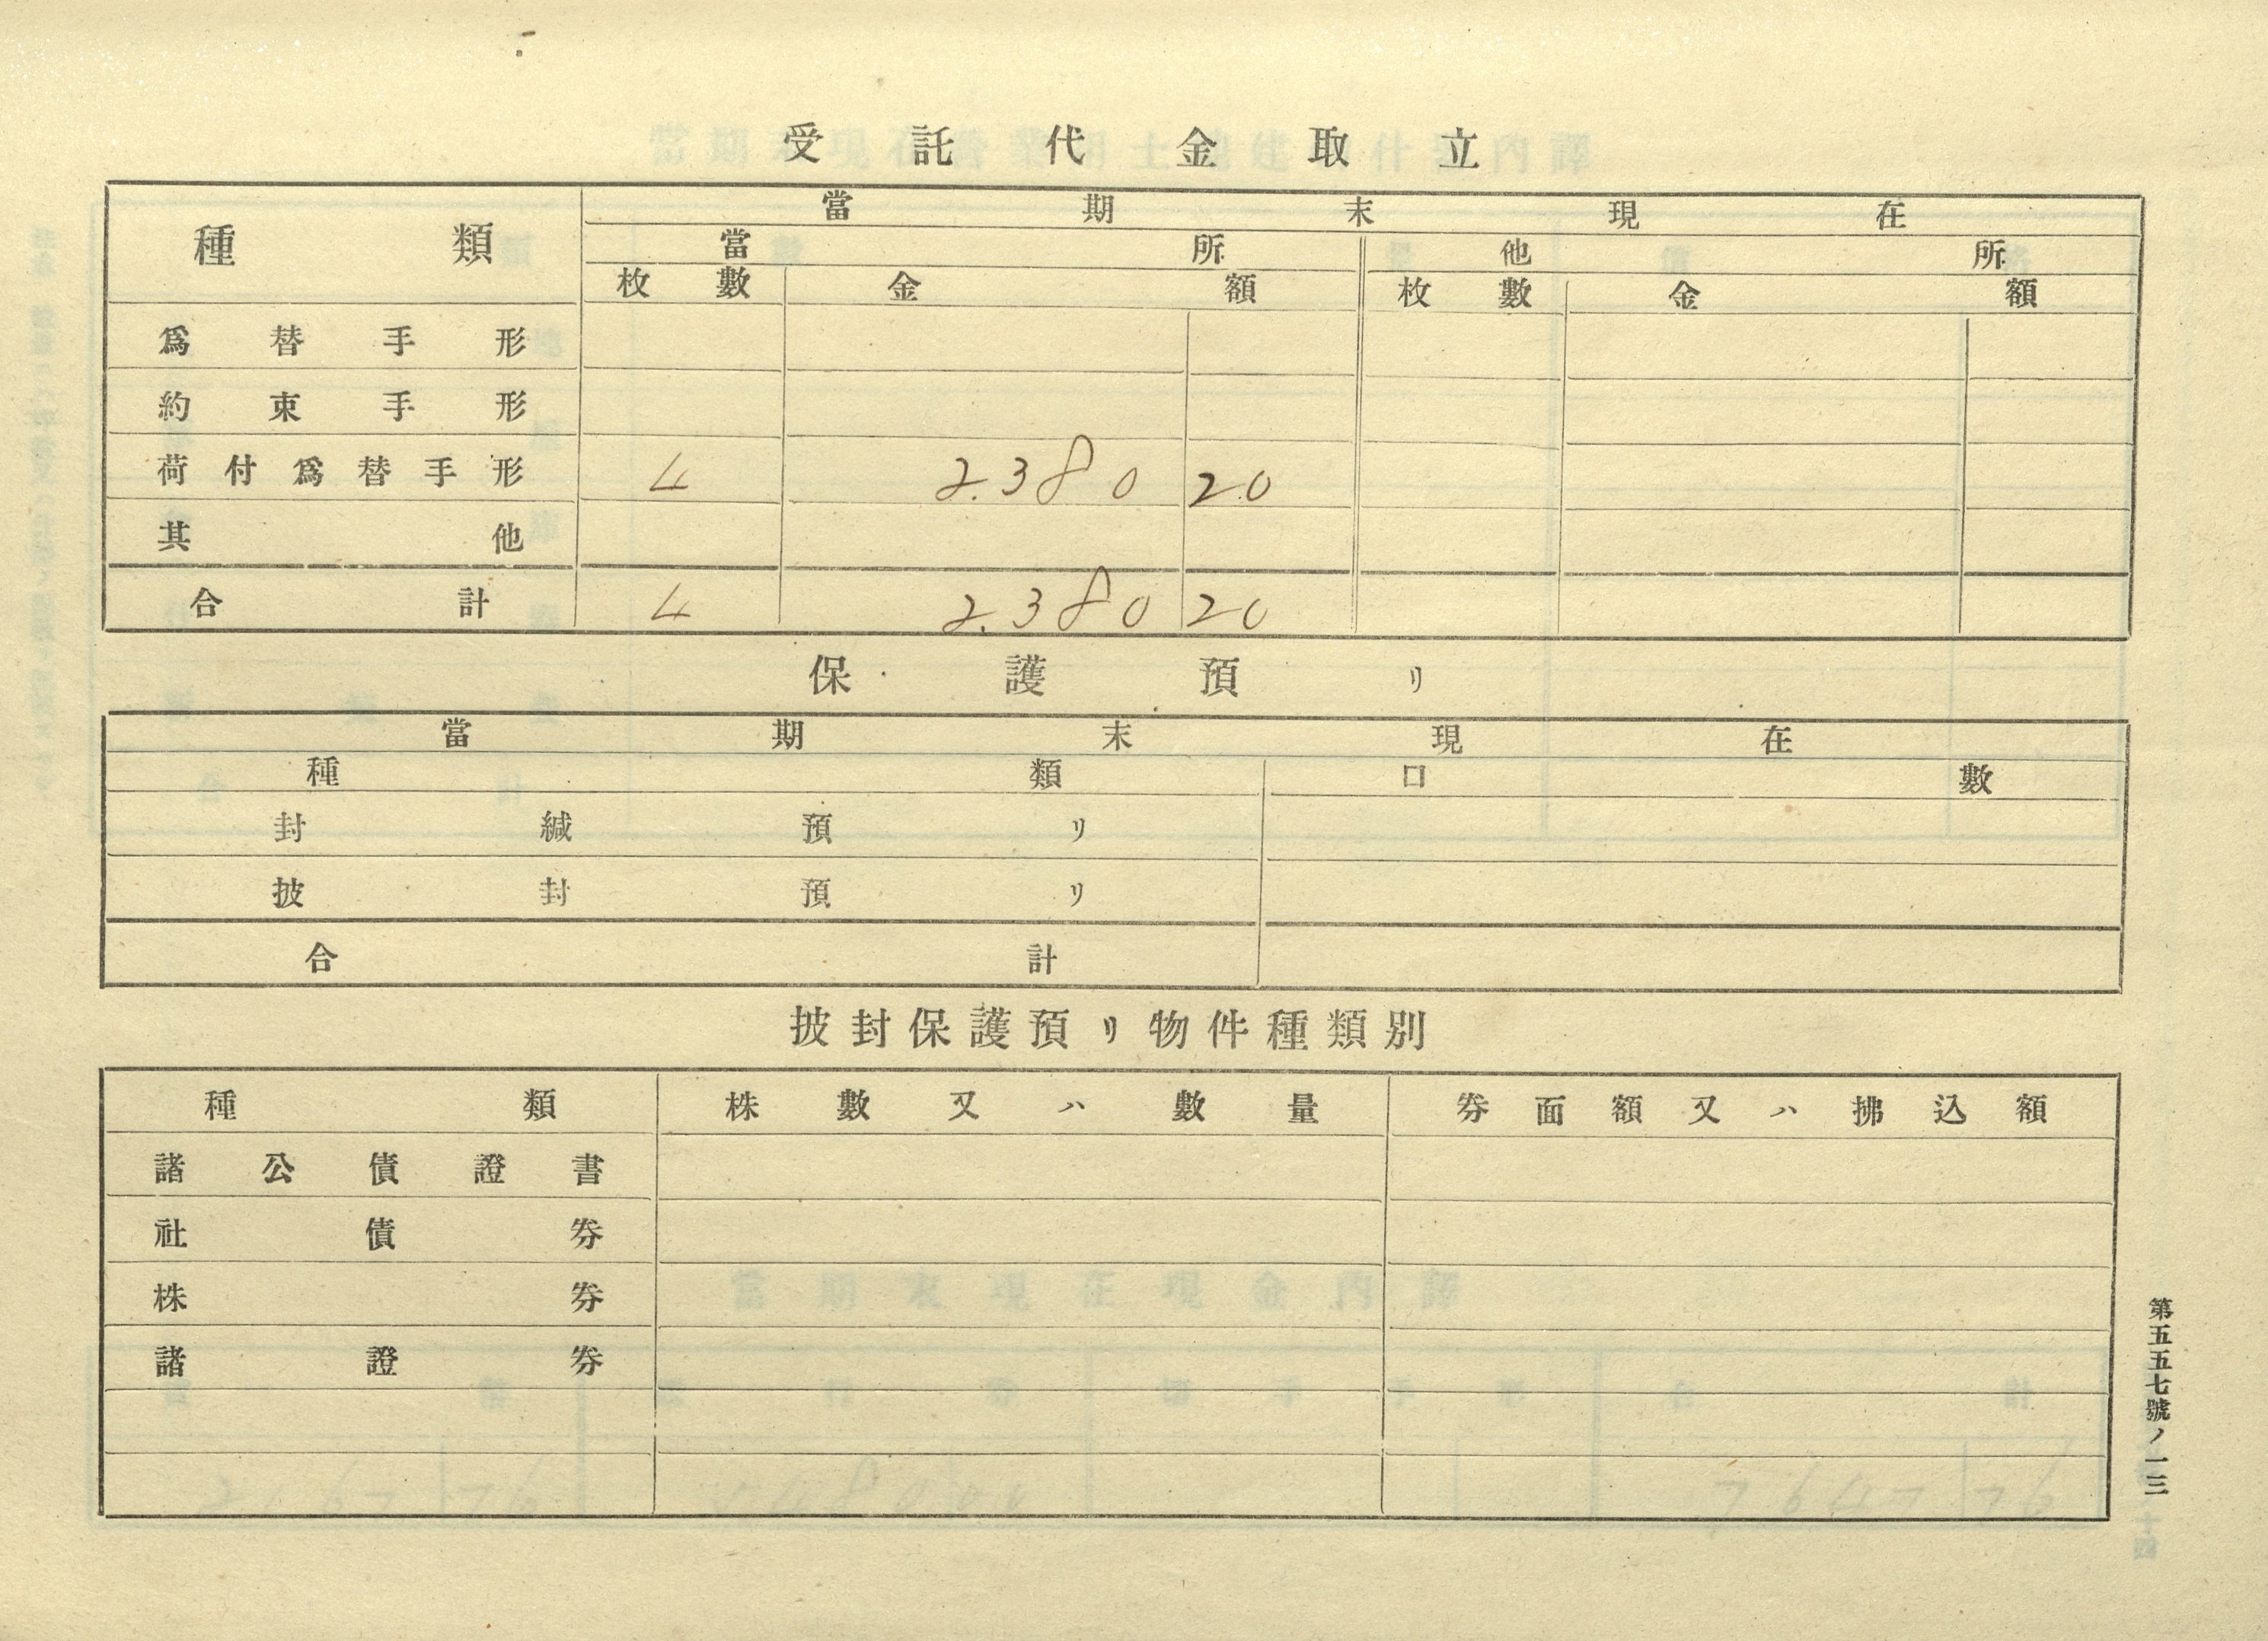 受託代金取立
種類 當期末現在
當所 他所
枚數 金額 枚數 金額
爲替手形
約束手形
荷付爲替手形 4 2.380 20
其他
合計 4 2.380 20
保護預リ
當期末現在
種類 口數
封緘預リ
披封預リ
合計
披封保護預リ物件種類別
種類 株數又ハ數量 券面額又ハ拂込額
諸公債證書
社債券
株券
諸證券
第五五七號ノ一三